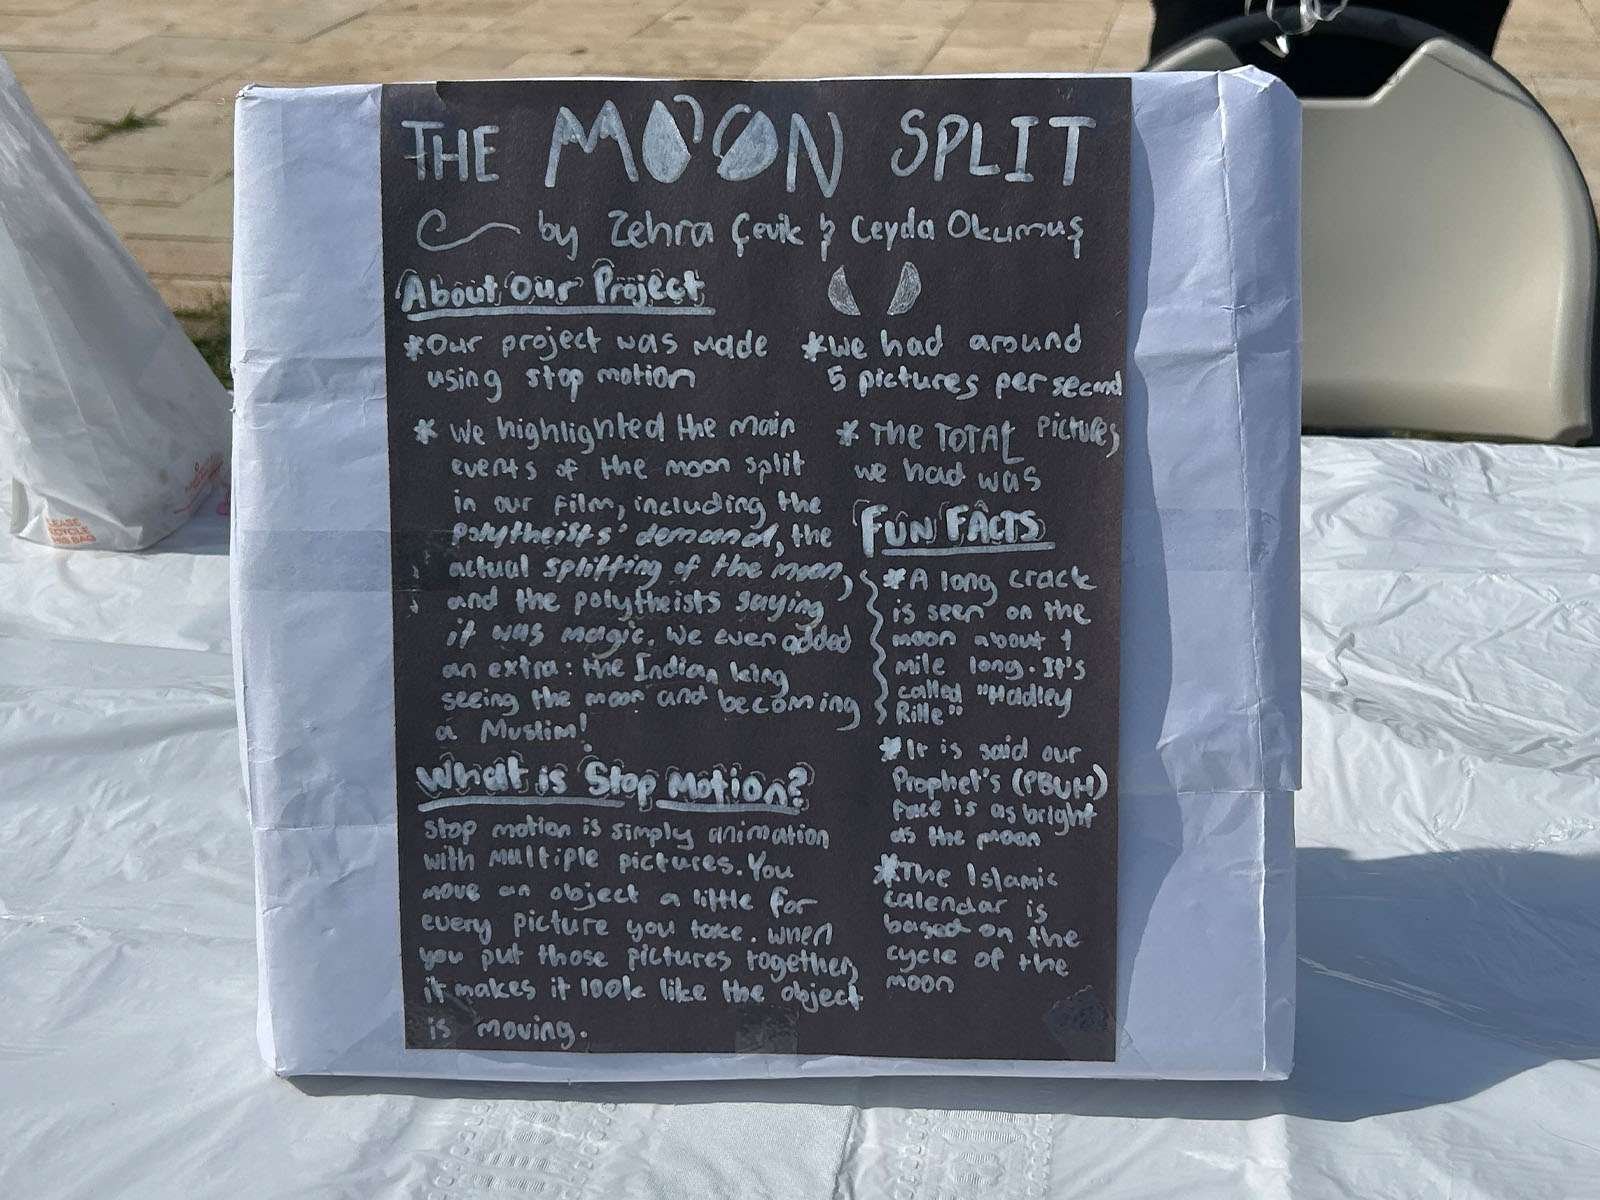 THE MOON SPLIT
by Zehra Çevik & Ceyda Okumuş
About Our Project
*Our project was made
using stop motion
* We highlighted the main
events of the moon split
in our film, including the
polytheists' demand, the
actual splitting of the moon,
and the polytheists saying
it was magic. We even added
an extra: the Indian king
seeing the moon and becoming
a Muslim!
What is Stop Motion?
Stop motion is simply animation
with multiple pictures. You
move an object a little for
every picture you take. When
you put those pictures together,
it makes it look like the object
is moving.
*We had around
5 pictures per second
* THE TOTAL pictures
we had was
FUN FACTS
*A long crack
is seen on the
moon about 1
mile long. It's
called "Hadley
Rille"
*It is said our
Prophet's (PBUH)
face is as bright
as the moon
*The Islamic
calendar is
based on the
cycle of the
moon